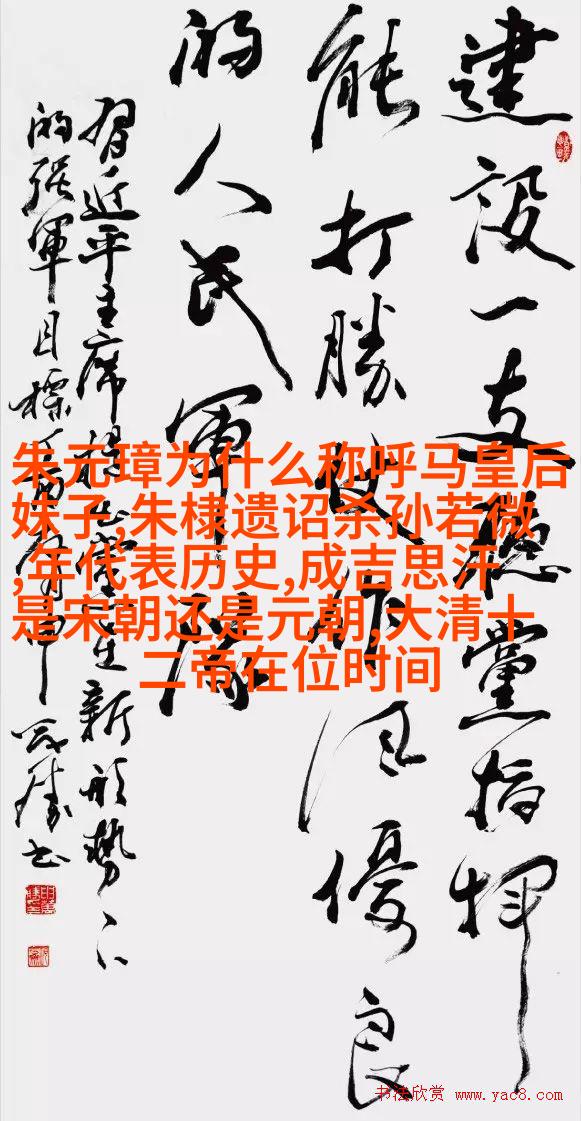 建設一支聽黨指揮
能打勝仗作风優良
的人民軍隊
習近平主席提出黨在新形勢下
的强軍目標
朱元璋为什么称呼马皇后
妹子,朱棣遗诏杀孙若微
,年代表历史,成吉思汗
是宋朝还是元朝,大清十
二帝在位时间
书法欣赏 www.yac8.com